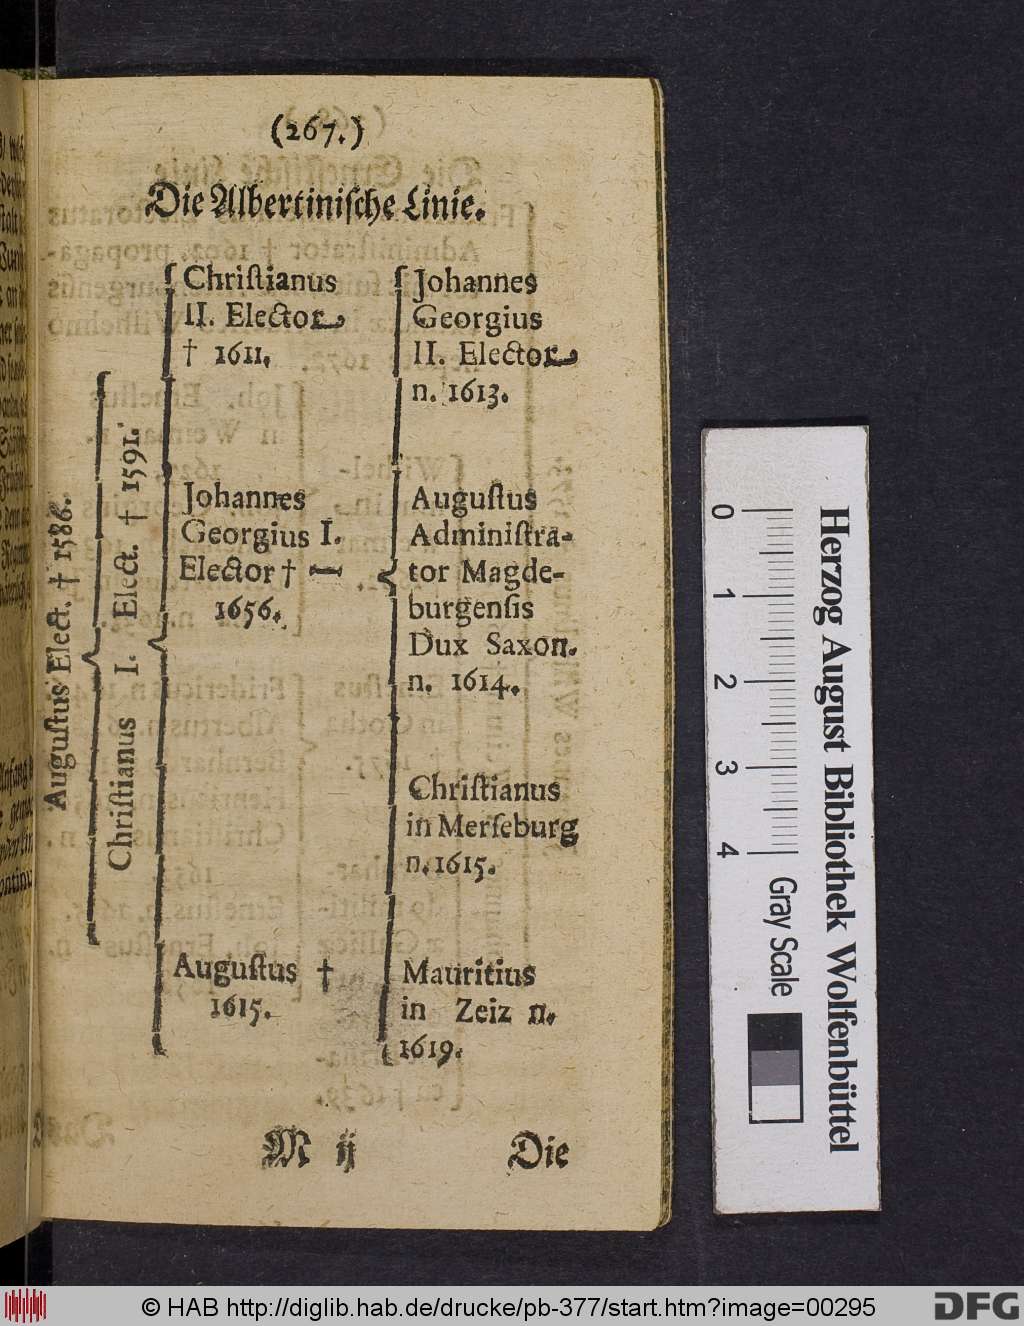 (267.)
Die Albertinische Linie.
Augustus Elect. † 1586.
Christianus I. Elect. † 1591.
Christianus
II. Elector
† 1611.
Johannes
Georgius I.
Elector †
1656.
Augustus †
1615.
Johannes
Georgius
II. Elector
n. 1613.
Augustus
Administra-
tor Magde-
burgensis
Dux Saxon.
n. 1614.
Christianus
in Merseburg
n. 1615.
Mauritius
in Zeiz n.
1619.
M ij
Die
0 1 2 3 4
Gray Scale
Herzog August Bibliothek Wolfenbüttel
© HAB http://diglib.hab.de/drucke/pb-377/start.htm?image=00295
DFG